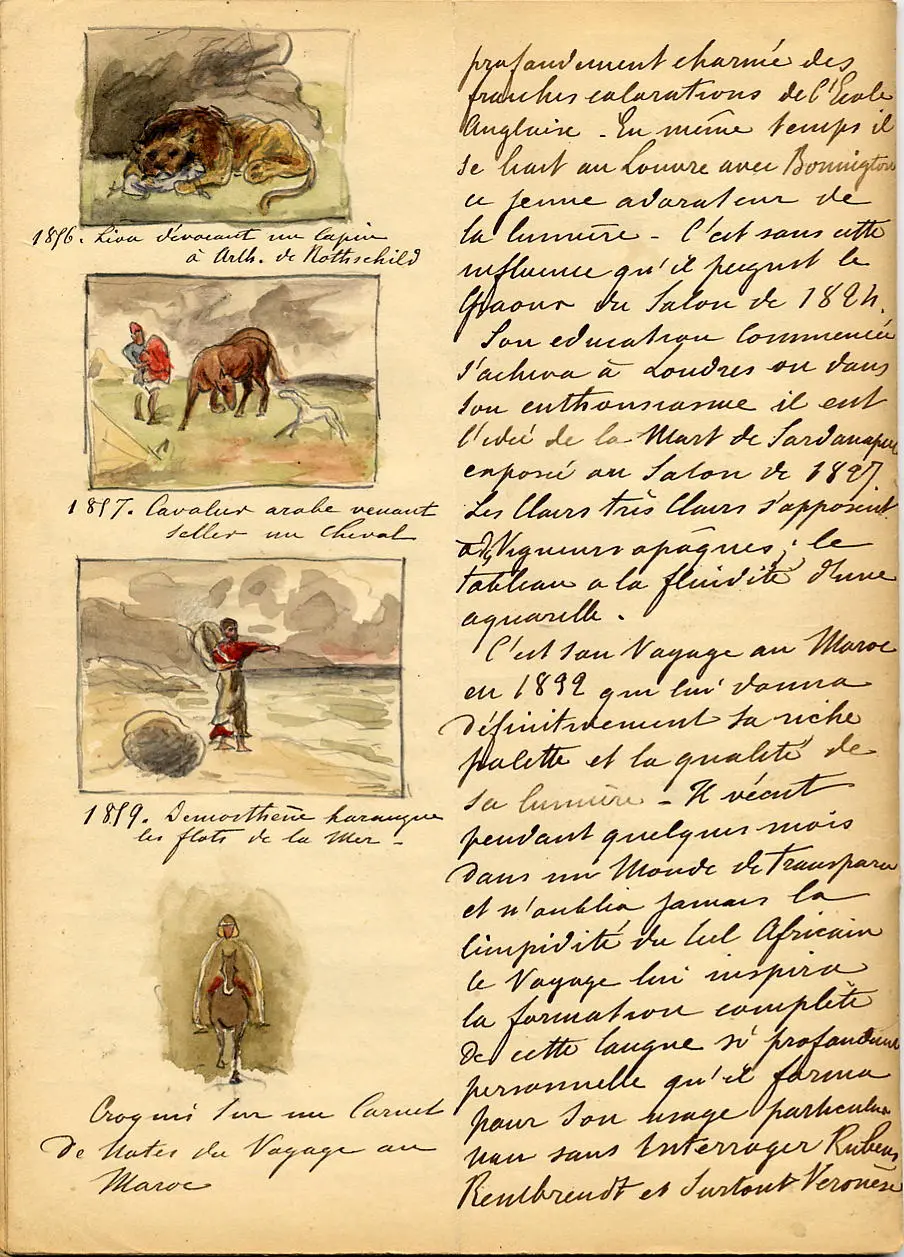 1856. Lion dévorant un lapin
à Arth. de Rothschild
1857. Cavalier arabe venant
seller un Cheval
1859. Demosthène harangue
les flots de la Mer -
Croquis sur un Carnet
De Notes du Voyage au
Maroc
profondement charmé des
franches colorations de l'Ecole
Anglaise - En même temps il
se liait au Louvre avec Bonnington
ce jeune adorateur de
la lumière - C'est sans cette
influence qu'il peignit le
Giaour du Salon de 1824.
Son education commencée
s'acheva à Londres ou dans
son enthousiasme il eut
l'idée de la Mort de Sardanapale
exposé au Salon de 1827
Les Clairs très Clairs s'opposent
à des Vigueurs opaques ; le
tableau a la fluidité d'une
aquarelle.
C'est son Voyage au Maroc
en 1832 qui lui donna
Définitivement sa riche
palette et la qualité de
sa lumière - Il vécut
pendant quelques mois
Dans un Monde de transpara
et n'oublia jamais la
limpidité du Ciel Africain
le Voyage lui inspira
la formation complète
De cette langue si profondement
personnelle qu'il forma
pour son usage particulier
non sans interroger Rubens
Rembrendt et surtout Veronèse